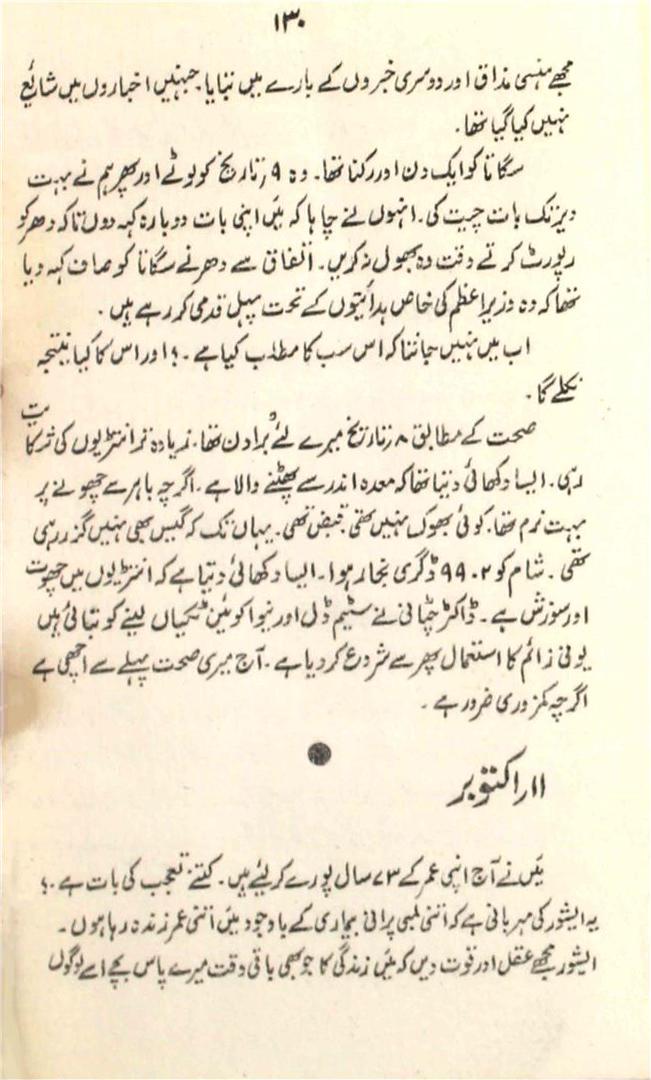 ۱۳۰
مجھے ہنسی مذاق اور دوسری خبروں کے بارے میں بتایا۔ جنہیں اخباروں میں شائع
نہیں کیا گیا تھا۔
سگاتا کو ایک دن اور رکنا تھا۔ وہ ۹؍ تاریخ کو لوٹے اور پھر ہم نے بہت
دیر تک بات چیت کی۔ انہوں نے چاہا کہ میں اپنی بات دوبارہ کہہ دوں تاکہ دھر کو
رپورٹ کرتے وقت وہ بھول نہ کریں۔ اتفاق سے دھر نے سگاتا کو صاف کہہ دیا
تھا کہ وہ وزیر اعظم کی خاص ہدائیتوں کے تحت پہل قدمی کر رہے ہیں۔
اب میں نہیں جانتا کہ اس سب کا مطلب کیا ہے۔؟ اور اس کا کیا نتیجہ
نکلے گا۔
صحت کے مطابق ۸؍ تاریخ میرے لئے بُرا دن تھا۔ زیادہ تر انتڑیوں کی شرکایت
رہی۔ ایسا دکھائی دیتا تھا کہ معدہ اندر سے پھٹنے والا ہے۔ اگرچہ باہر سے چھونے پر
بہت نرم تھا۔ کوئی بھوک نہیں تھی قبض تھی۔ یہاں تک کہ گیس بھی نہیں گزر رہی
تھی۔ شام کو ۹۹۰۲ ڈگری بخار ہوا۔ ایسا دکھائی دیتا ہے کہ انتڑیوں میں چھوت
اور سوزش ہے۔ ڈاکٹر چٹانی نے سٹیم ڈل اور نیوا کوئین ٹکیاں لینے کو بتائی ہیں
یونی زائم کا استعمال پھر سے شروع کر دیا ہے۔ آج میری صحت پہلے سے اچھی ہے
اگرچہ کمزوری ضرور ہے۔
۱۱؍ اکتوبر
میں نے آج اپنی عمر کے ۷۳ سال پورے کر لیئے ہیں۔ کتنے تعجب کی بات ہے۔؟
یہ ایشور کی مہربانی ہے کہ اتنی لمبی پرانی بیماری کے باوجود میں اتنی عمر زندہ رہا ہوں۔
ایشور مجھے عقل اور قوت دیں کہ میں زندگی کا جو بھی باقی وقت میرے پاس بچے اسے لوگوں